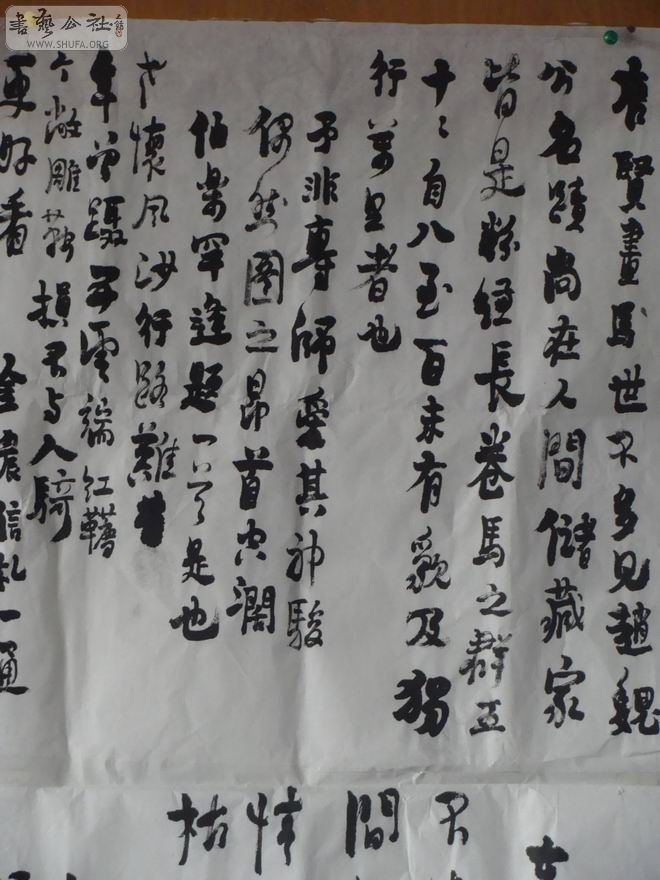 書藝公社
WWW.SHUFA.ORG
唐賢畫馬世不多見趙魏
公名蹟尚在人間儲藏家
皆是粉經長卷馬之群五
十〻自八至百未有貌及獨
行萬里者也
予非專師愛其神駿
偶然圖之昂首空闊
伯樂罕逢題一是也
懷風沙行路難昔
年曾躡五雲端紅韉
今敝雕鞍損不与人騎
更好看 金農信札一通
不
間
悴
枯